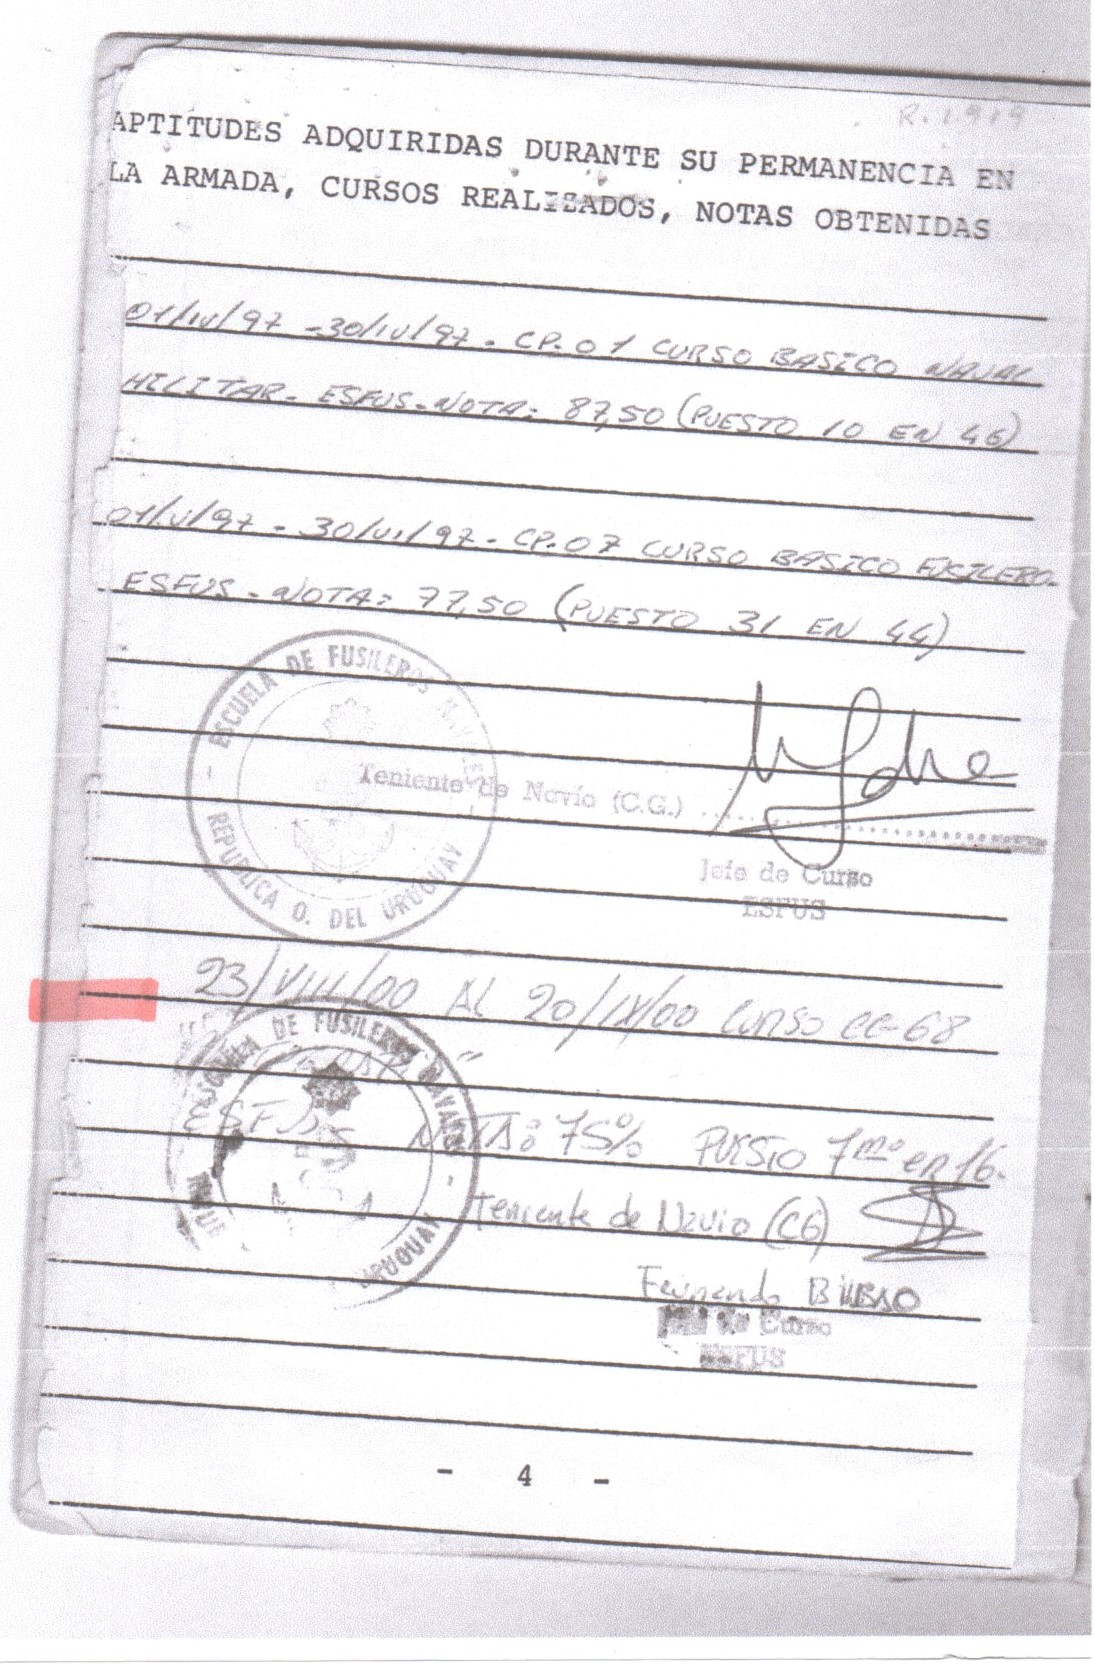 R.1919
APTITUDES ADQUIRIDAS DURANTE SU PERMANENCIA EN
LA ARMADA, CURSOS REALIZADOS, NOTAS OBTENIDAS
01/IV/97 - 30/IV/97 - CP.01 CURSO BASICO NAVAL
MILITAR - ESFUS - NOTA: 87,50 (PUESTO 10 EN 46)
01/V/97 - 30/VI/97 - CP.07 CURSO BASICO FUSILERO -
ESFUS - NOTA: 77,50 (PUESTO 31 EN 44)
ESCUELA DE FUSILEROS NAVALES
REPUBLICA O. DEL URUGUAY
Teniente de Navío (C.G.)
Jefe de Curso
ESFUS
23/VIII/00 AL 20/IX/00 CURSO CC-68
DE FUSILEROS NAVALES
URUGUAY
ESFUS NOTA: 75% PUESTO 7mo en 16.
Teniente de Navio (CG)
Fernando BILBAO
de Curso
ESFUS
- 4 -